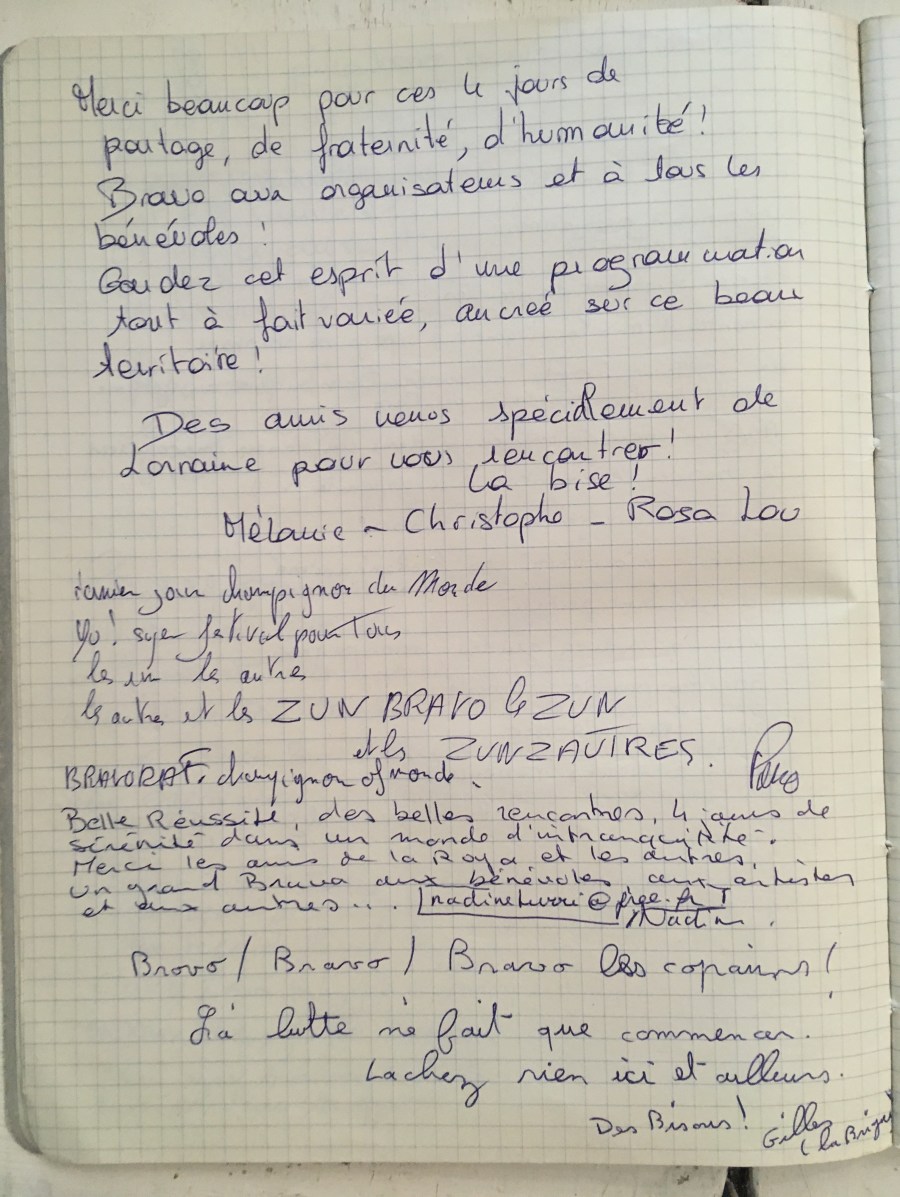 Merci beaucoup pour ces 4 jours de
partage, de fraternité, d'humanité !
Bravo aux organisateurs et à tous les
bénévoles !
Gardez cet esprit d'une programmation
tout à fait variée, ancreé sur ce beau
territoire !
Des amis venus spécialement de
Lorraine pour vous rencontrer !
La bise !
Mélanie - Christophe - Rosa Lou
champignon du Monde
Yo ! super festival pour Tous
les un les autres
les autres et les ZUN BRAVO le ZUN
et les ZUNZAUTRES.
BRAVO RAT. champignon of monde.
Belle Réussite, des belles rencontres, 4 jours de
sérénité dans un monde d'intranquilité.
Merci les amis de la Roya et les autres,
un grand Brava aux bénévoles aux artistes
et aux autres... @free.fr
Nadine.
Brovo / Bravo / Bravo les copains !
La lutte ne fait que commencer.
Lachez rien ici et ailleurs.
Des Bisous ! Gilles
(la Brigue